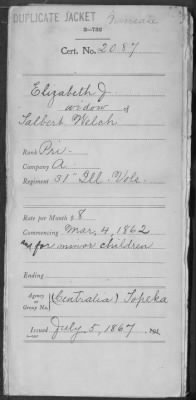 DUPLICATE JACKET
3-732
Cert. No. 2087
Elizabeth J.
widow of
Talbert Welch
Rank Pri.
Company A.
Regiment 31" Ill. Vols.
Rate per Month $8
Commencing Mar. 4, 1862
for minor children
Ending
Agency or Group No. (Centralia) Topeka
Issued July 5, 1867